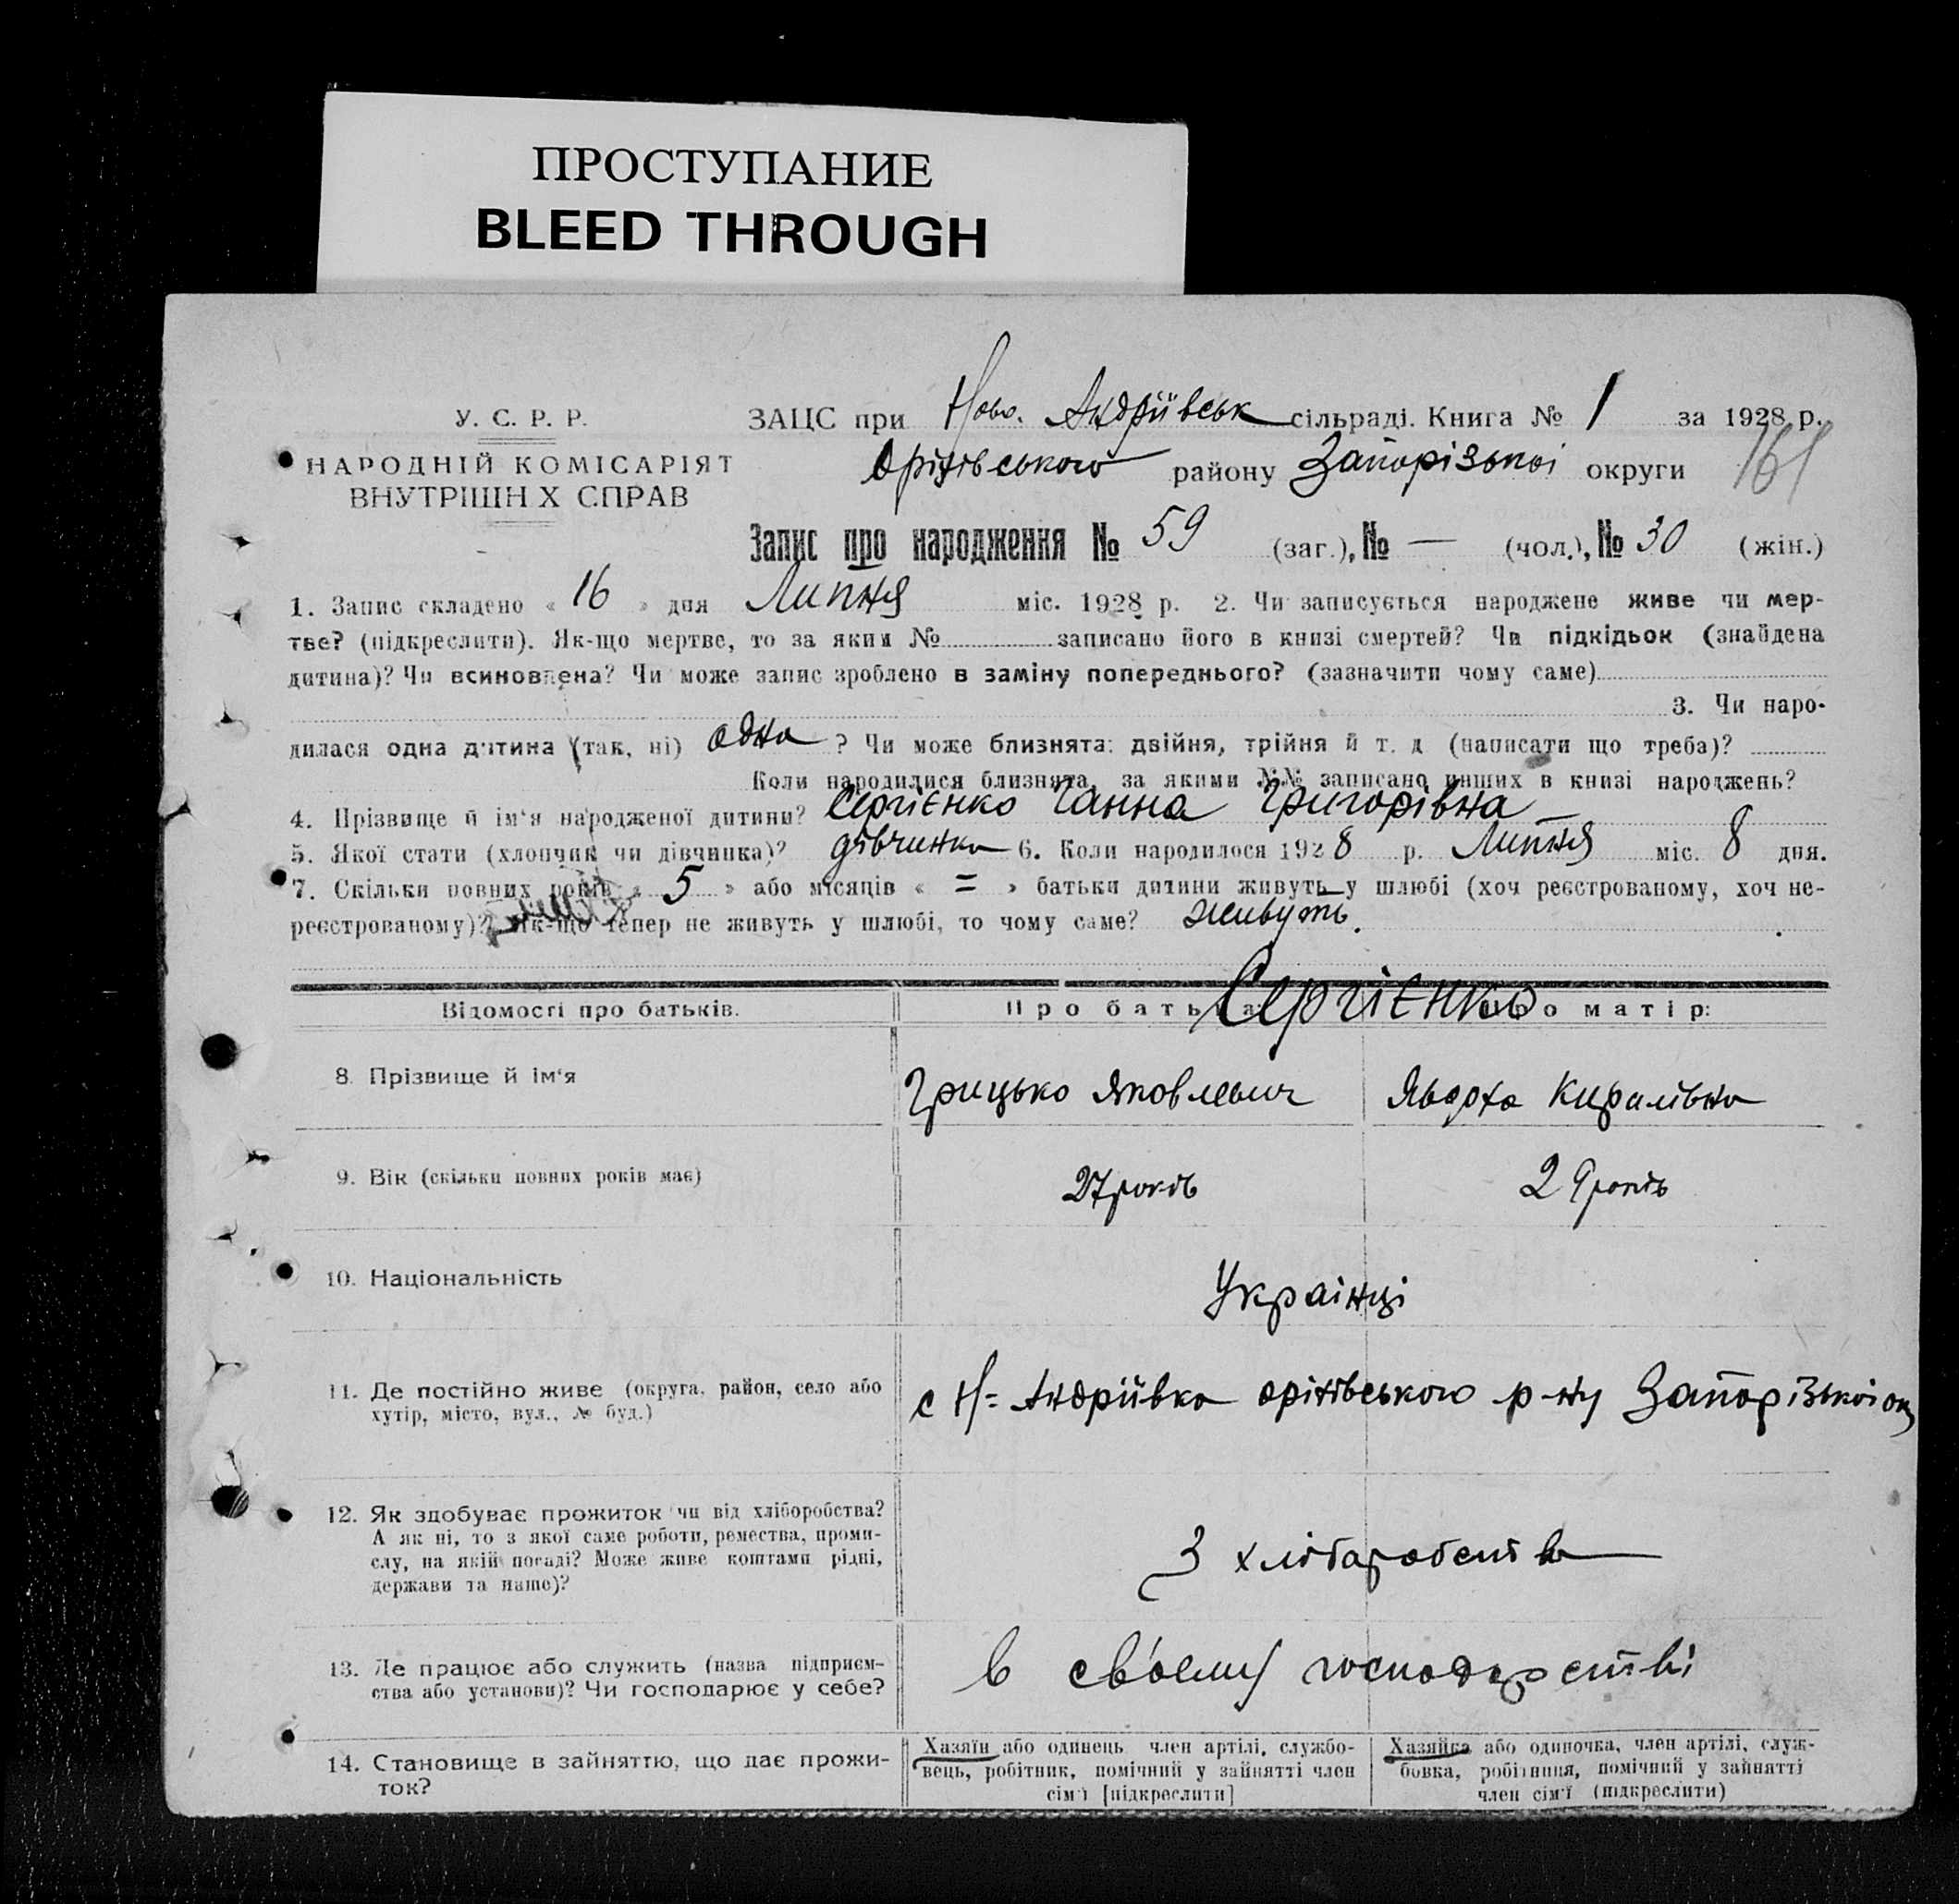 ПРОСТУПАНИЕ
BLEED THROUGH
У. С. Р. Р.
НАРОДНІЙ КОМІСАРІЯТ
ВНУТРІШН Х СПРАВ
ЗАЦС при Ново. Андріївськ сільраді. Книга № 1 за 1928 р.
Оріхівського району Запорізької округи 161
Запис про народження № 59 (заг.), № — (чол.), № 30 (жін.)
1. Запис складено « 16 » дня Липня міс. 1928 р. 2. Чи записується народжене живе чи мер-
тве? (підкреслити). Як-що мертве, то за яким № записано його в книзі смертей? Чи підкідьок (знайдена
дитина)? Чи всиновлена? Чи може запис зроблено в заміну попереднього? (зазначити чому саме)
3. Чи наро-
дилася одна дитина (так, ні) одна ? Чи може близнята: двійня, трійня й т. д (написати що треба)?
Коли народилися близнята, за якими №№ записано инших в книзі народжень?
4. Прізвище й ім'я народженої дитини? Сергієнко Ганна Григорівна
5. Якої стати (хлопчик чи дівчинка)? дівчинка 6. Коли народилося 1928 р. Липня міс. 8 дня.
7. Скільки повних років « 5 » або місяців « = » батьки дитини живуть у шлюбі (хоч реєстрованому, хоч не-
реєстрованому)? Як-що тепер не живуть у шлюбі, то чому саме? живуть.
Сергієнко
Відомості про батьків. Про батька Про матір:
8. Прізвище й ім'я Грицько Яковлевич Явдоха Кирилівна
9. Вік (скільки повних років має) 27 років 29 років
10. Національність Українці
11. Де постійно живе (округа, район, село або
хутір, місто, вул., № буд.)
с Н= Андріївка оріхівського р-ну Запорізької ок
12. Як здобуває прожиток чи від хліборобства?
А як ні, то з якої саме роботи, ремества, проми-
слу, на якій посаді? Може живе коштами рідні,
держави та инше)?
З хліборобства
13. Де працює або служить (назва підприєм-
ства або установи)? Чи господарює у себе?
в своєму господарстві
14. Становище в зайняттю, що дає прожи-
ток?
Хазяїн або одинець член артілі, службо-
вець, робітник, помічний у зайнятті член
сім'ї [підкреслити]
Хазяйка або одиночка, член артілі, служ-
бовка, робітниця, помічний у зайнятті
член сім'ї (підкреслити)